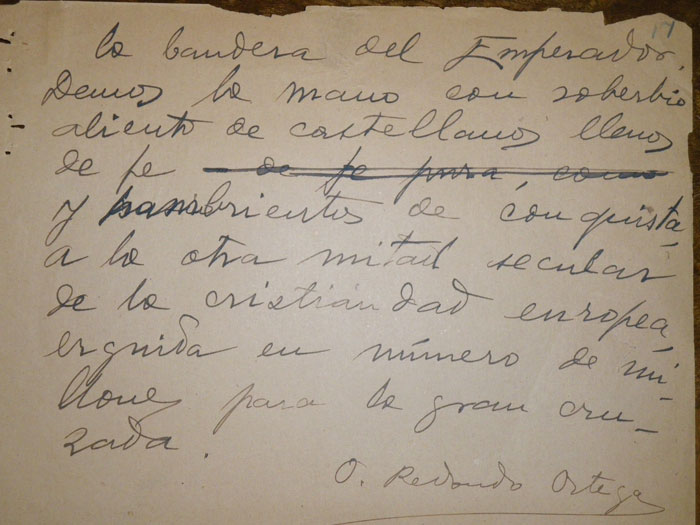 17
la bandera del Emperador.
Demos la mano con soberbio
aliento de castellanos llenos
de fe de fe pura, como
y hambrientos de conquista,
a la otra mitad secular
de la cristiandad europea,
erguida en número de mi-
llones para la gran cru-
zada.
O. Redondo Ortega